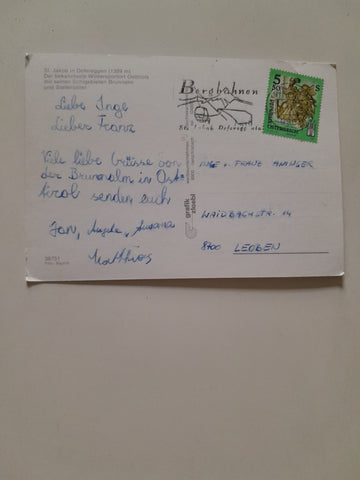 St. Jakob in Defereggen (1389 m)
Der bekannteste Wintersportort Osttirols
mit seinen Schigebieten Brunnalm
und Stallersattel
Liebe Inge
Lieber Franz
Viele liebe Grüsse von
der Brunnalm in Ost-
tirol senden euch
Jan, Angela, Susanna
Matthias
Bergbahnen
St. Jakob Defereggental
5
S
grafik
zloebl
INGE u. FRANZ
WAIDBACHSTR. 14
8700 LEOBEN